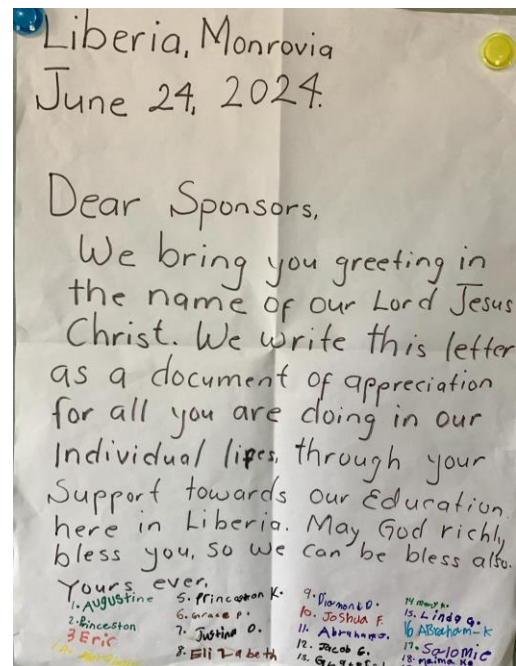 Liberia, Monrovia
June 24, 2024.
Dear Sponsors,
We bring you greeting in
the name of our Lord Jesus
Christ. We write this letter
as a document of appreciation
for all you are doing in our
Individual lipes, through your
Support towards our Education
here in Liberia. May God richly
bless you, so we can be bless also.
Yours ever,
1. Augustine
2. Princeston
3 Eric
5. Princeston K.
6. Grace P.
7. Justina O.
8. Elizabeth
9. Diamond D.
10. Joshua F.
11. Abraham
12. Jacob G.
13.
14 Mary K.
15. Linda G.
16 ABraham-K
17. Salomie
18. Maima K